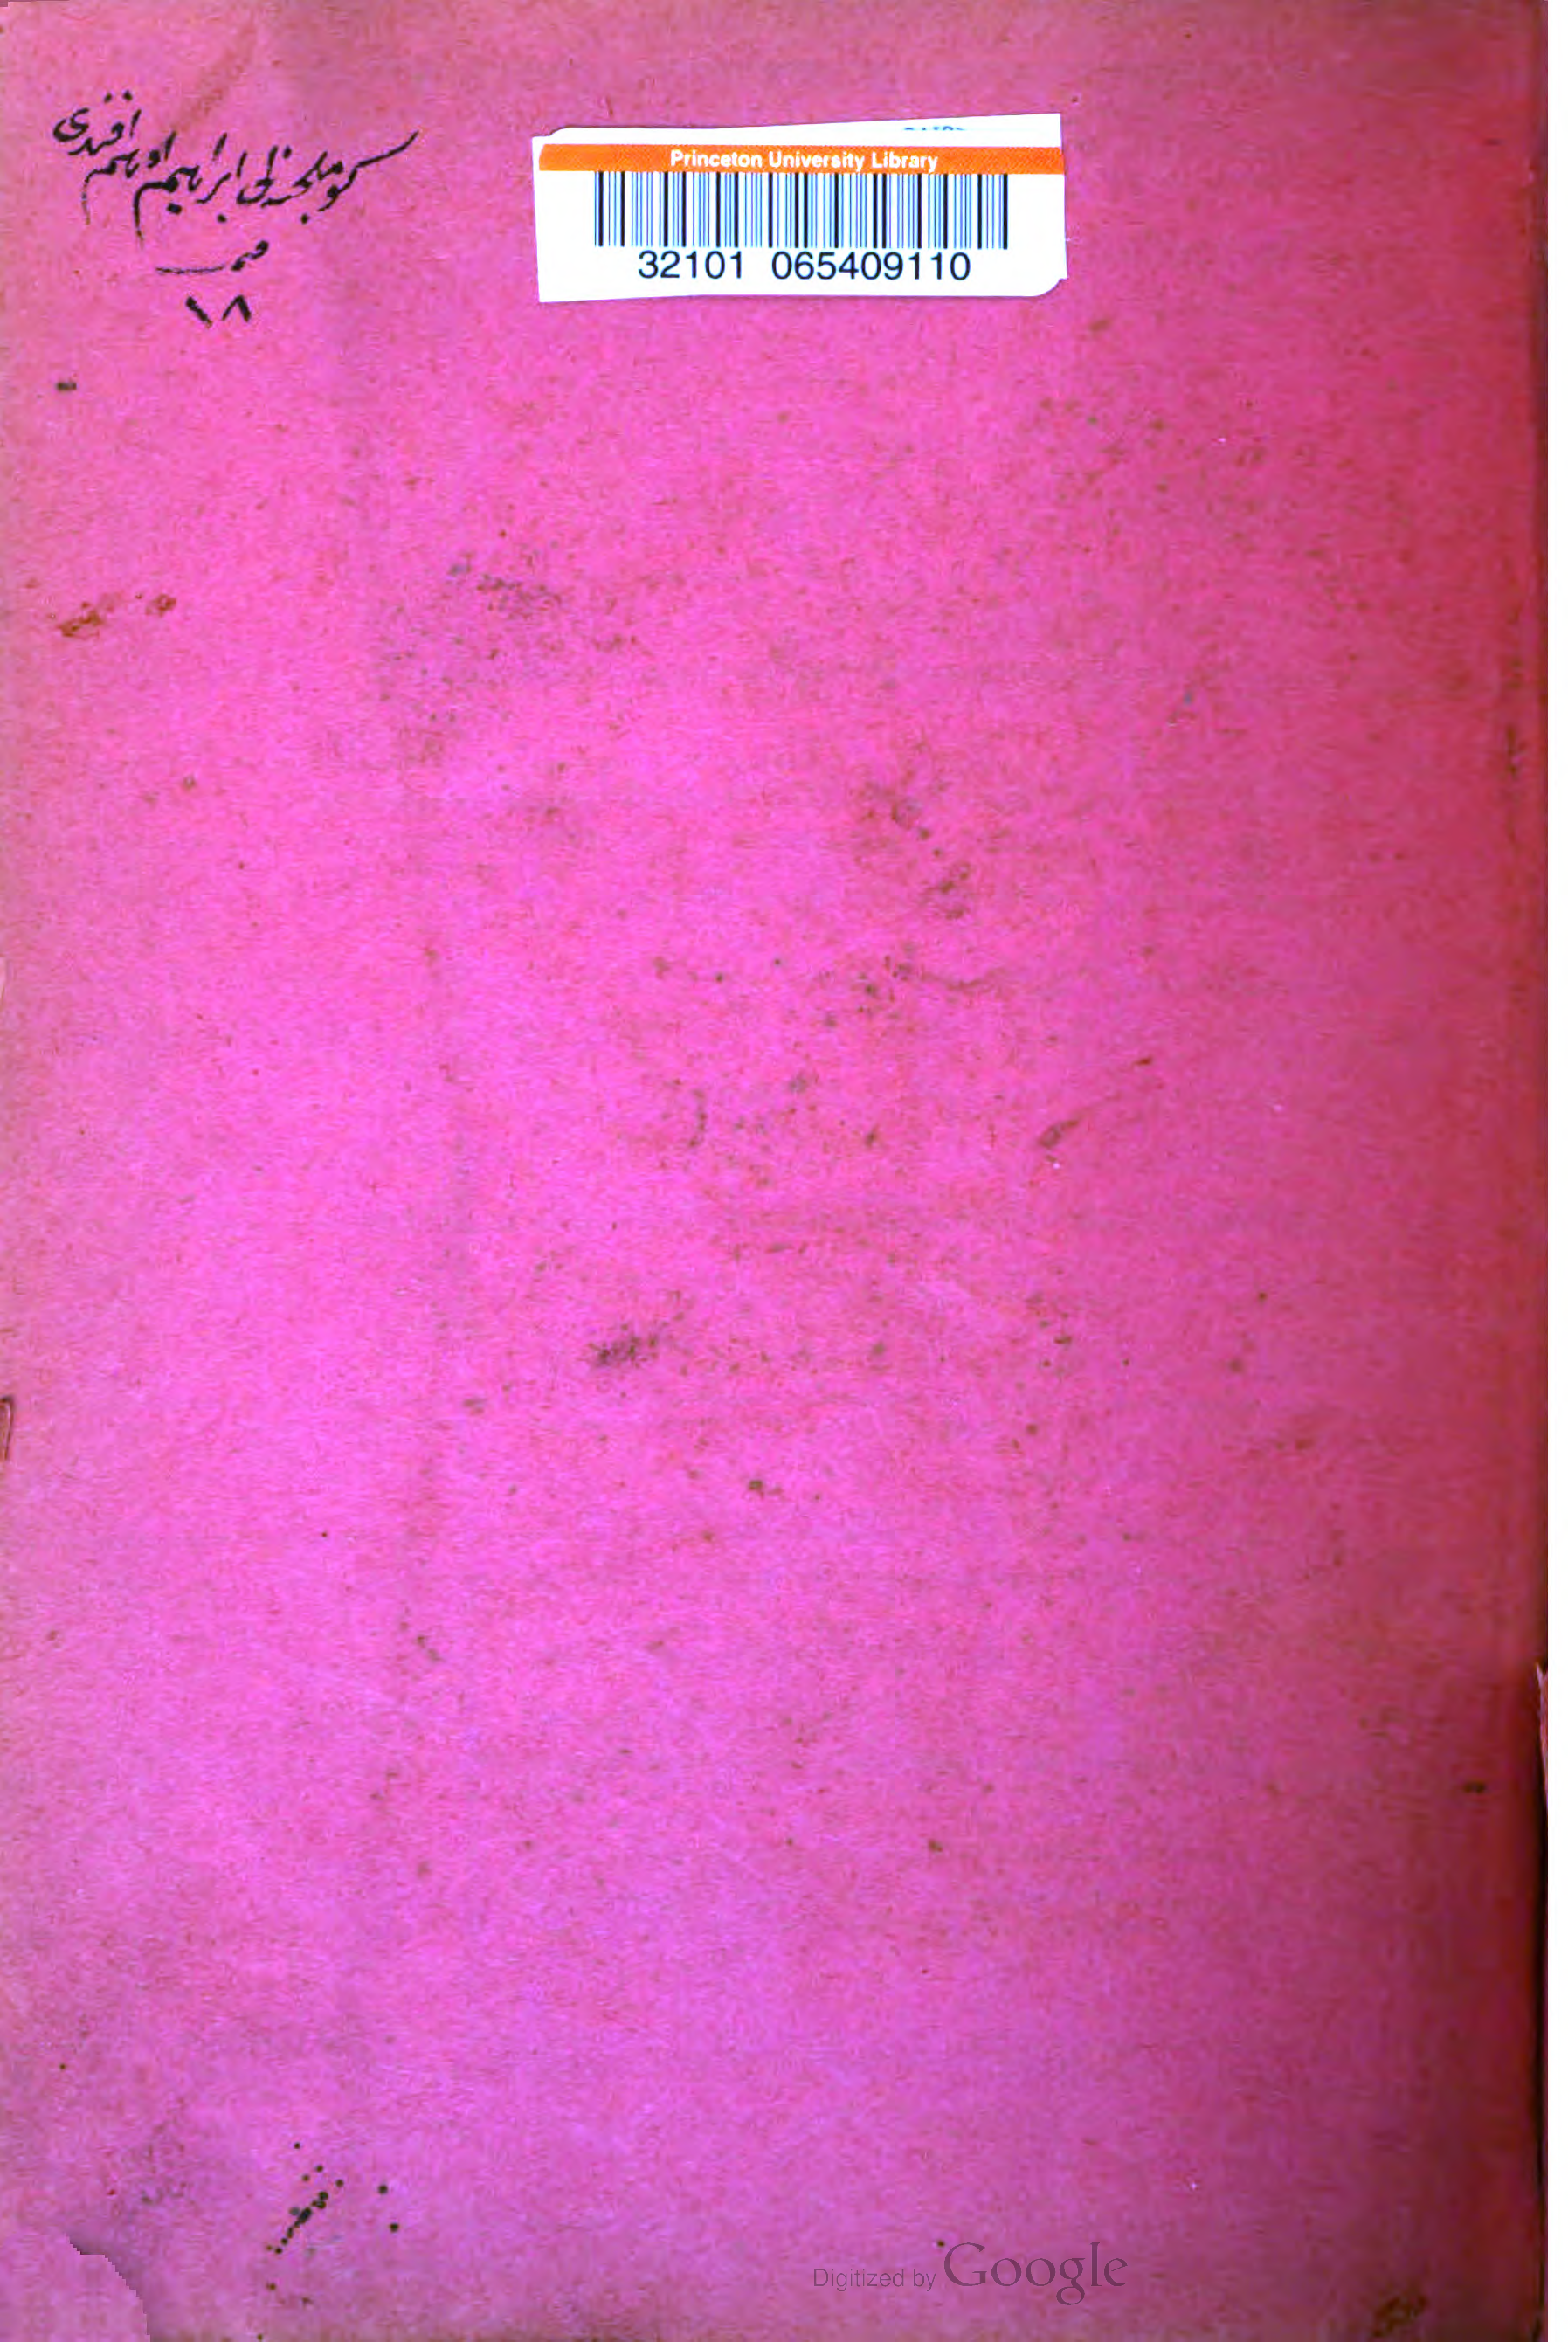 كوملجنه لى ابراهيم ادهم افندى
١٨
Princeton University Library
32101 065409110
Digitized by Google